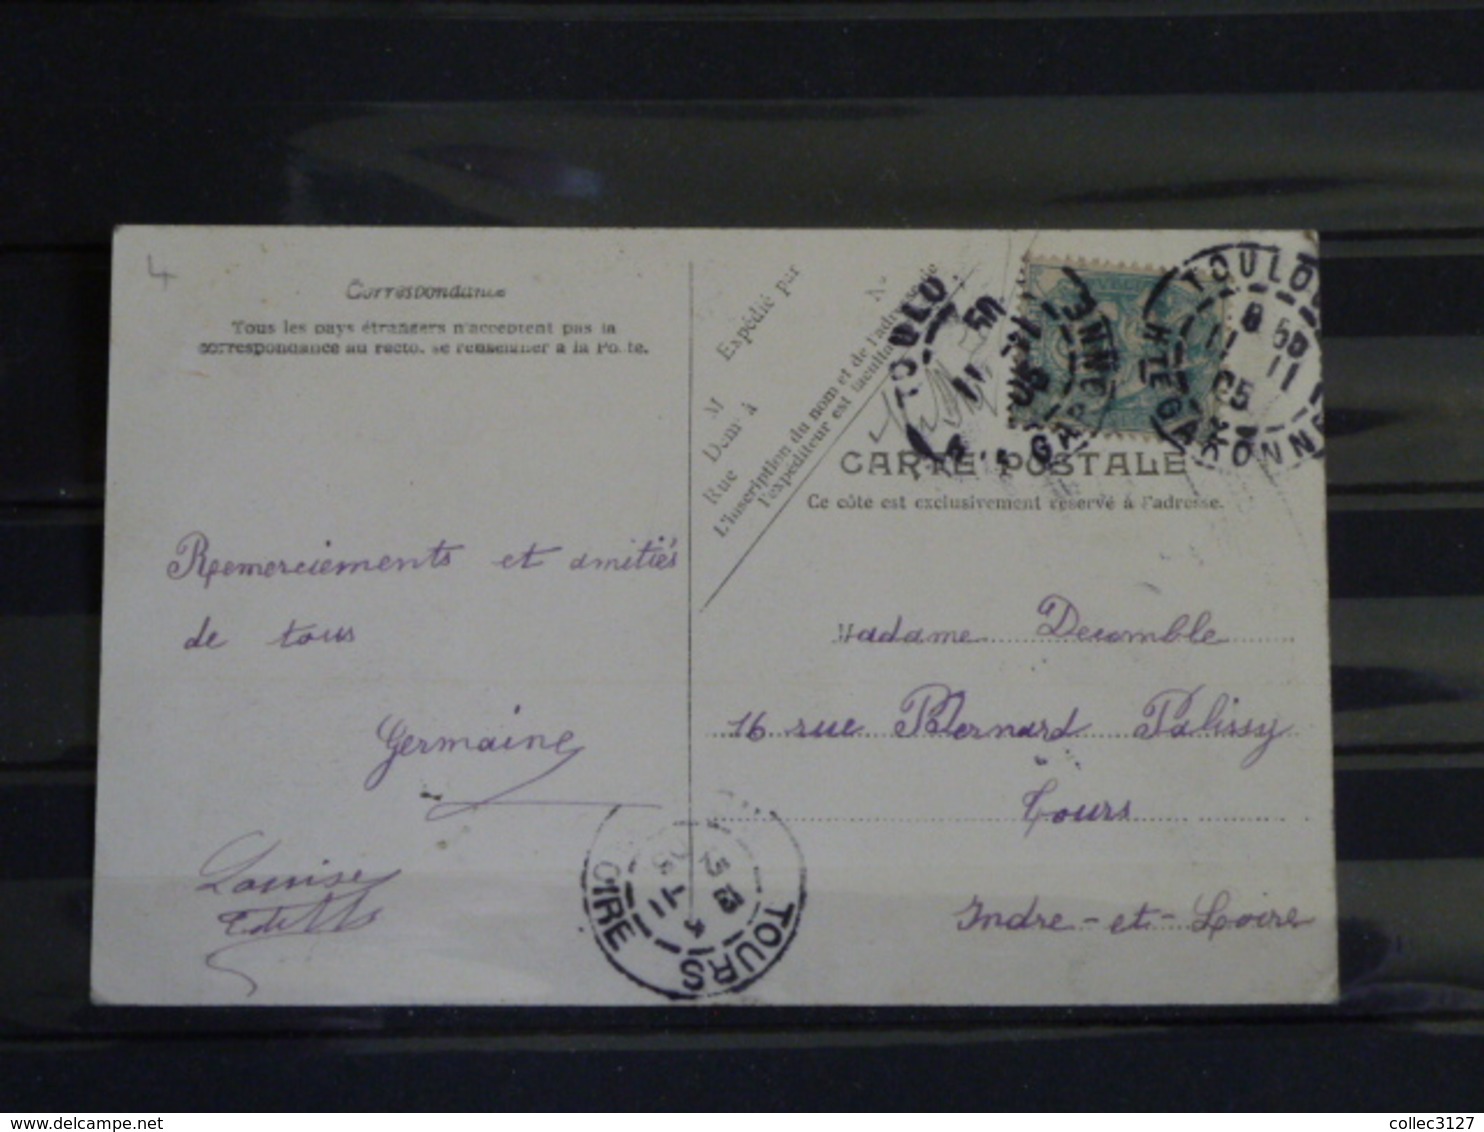 4
Correspondance
Tous les pays étrangers n'acceptent pas la
correspondance au recto, se renseigner à la Poste.
Remerciements et amitiés
de tous
Germaine
Louise
Expédié par
M
Dem<sup>t</sup> à
Rue
N°
L'inscription du nom et de l'adresse de
l'expéditeur est facultative
CARTE POSTALE
Ce côté est exclusivement réservé à l'adresse.
Madame Decomble
16 rue Bernard Palissy
Tours
Indre-et-Loire
TOULO
50
11
05
GARONNE
TOULOU
8 50
11 11
05
HTE GARONNE
TOURS
OIRE
collec3127